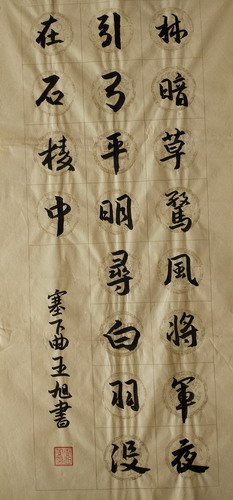 林暗草驚風將軍夜
引弓平明尋白羽没
在石棱中
塞下曲王旭書